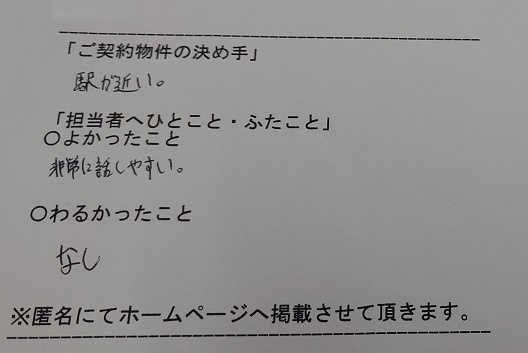 「ご契約物件の決め手」
駅が近い。
「担当者へひとこと・ふたこと」
〇よかったこと
非常に話しやすい。
〇わるかったこと
なし
※匿名にてホームページへ掲載させて頂きます。